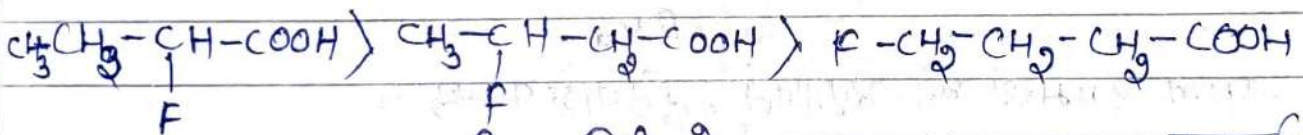 CH₃-CH₂-CH-COOH > CH₃-CH-CH₂-COOH > F-CH₂-CH₂-CH₂-COOH
F F